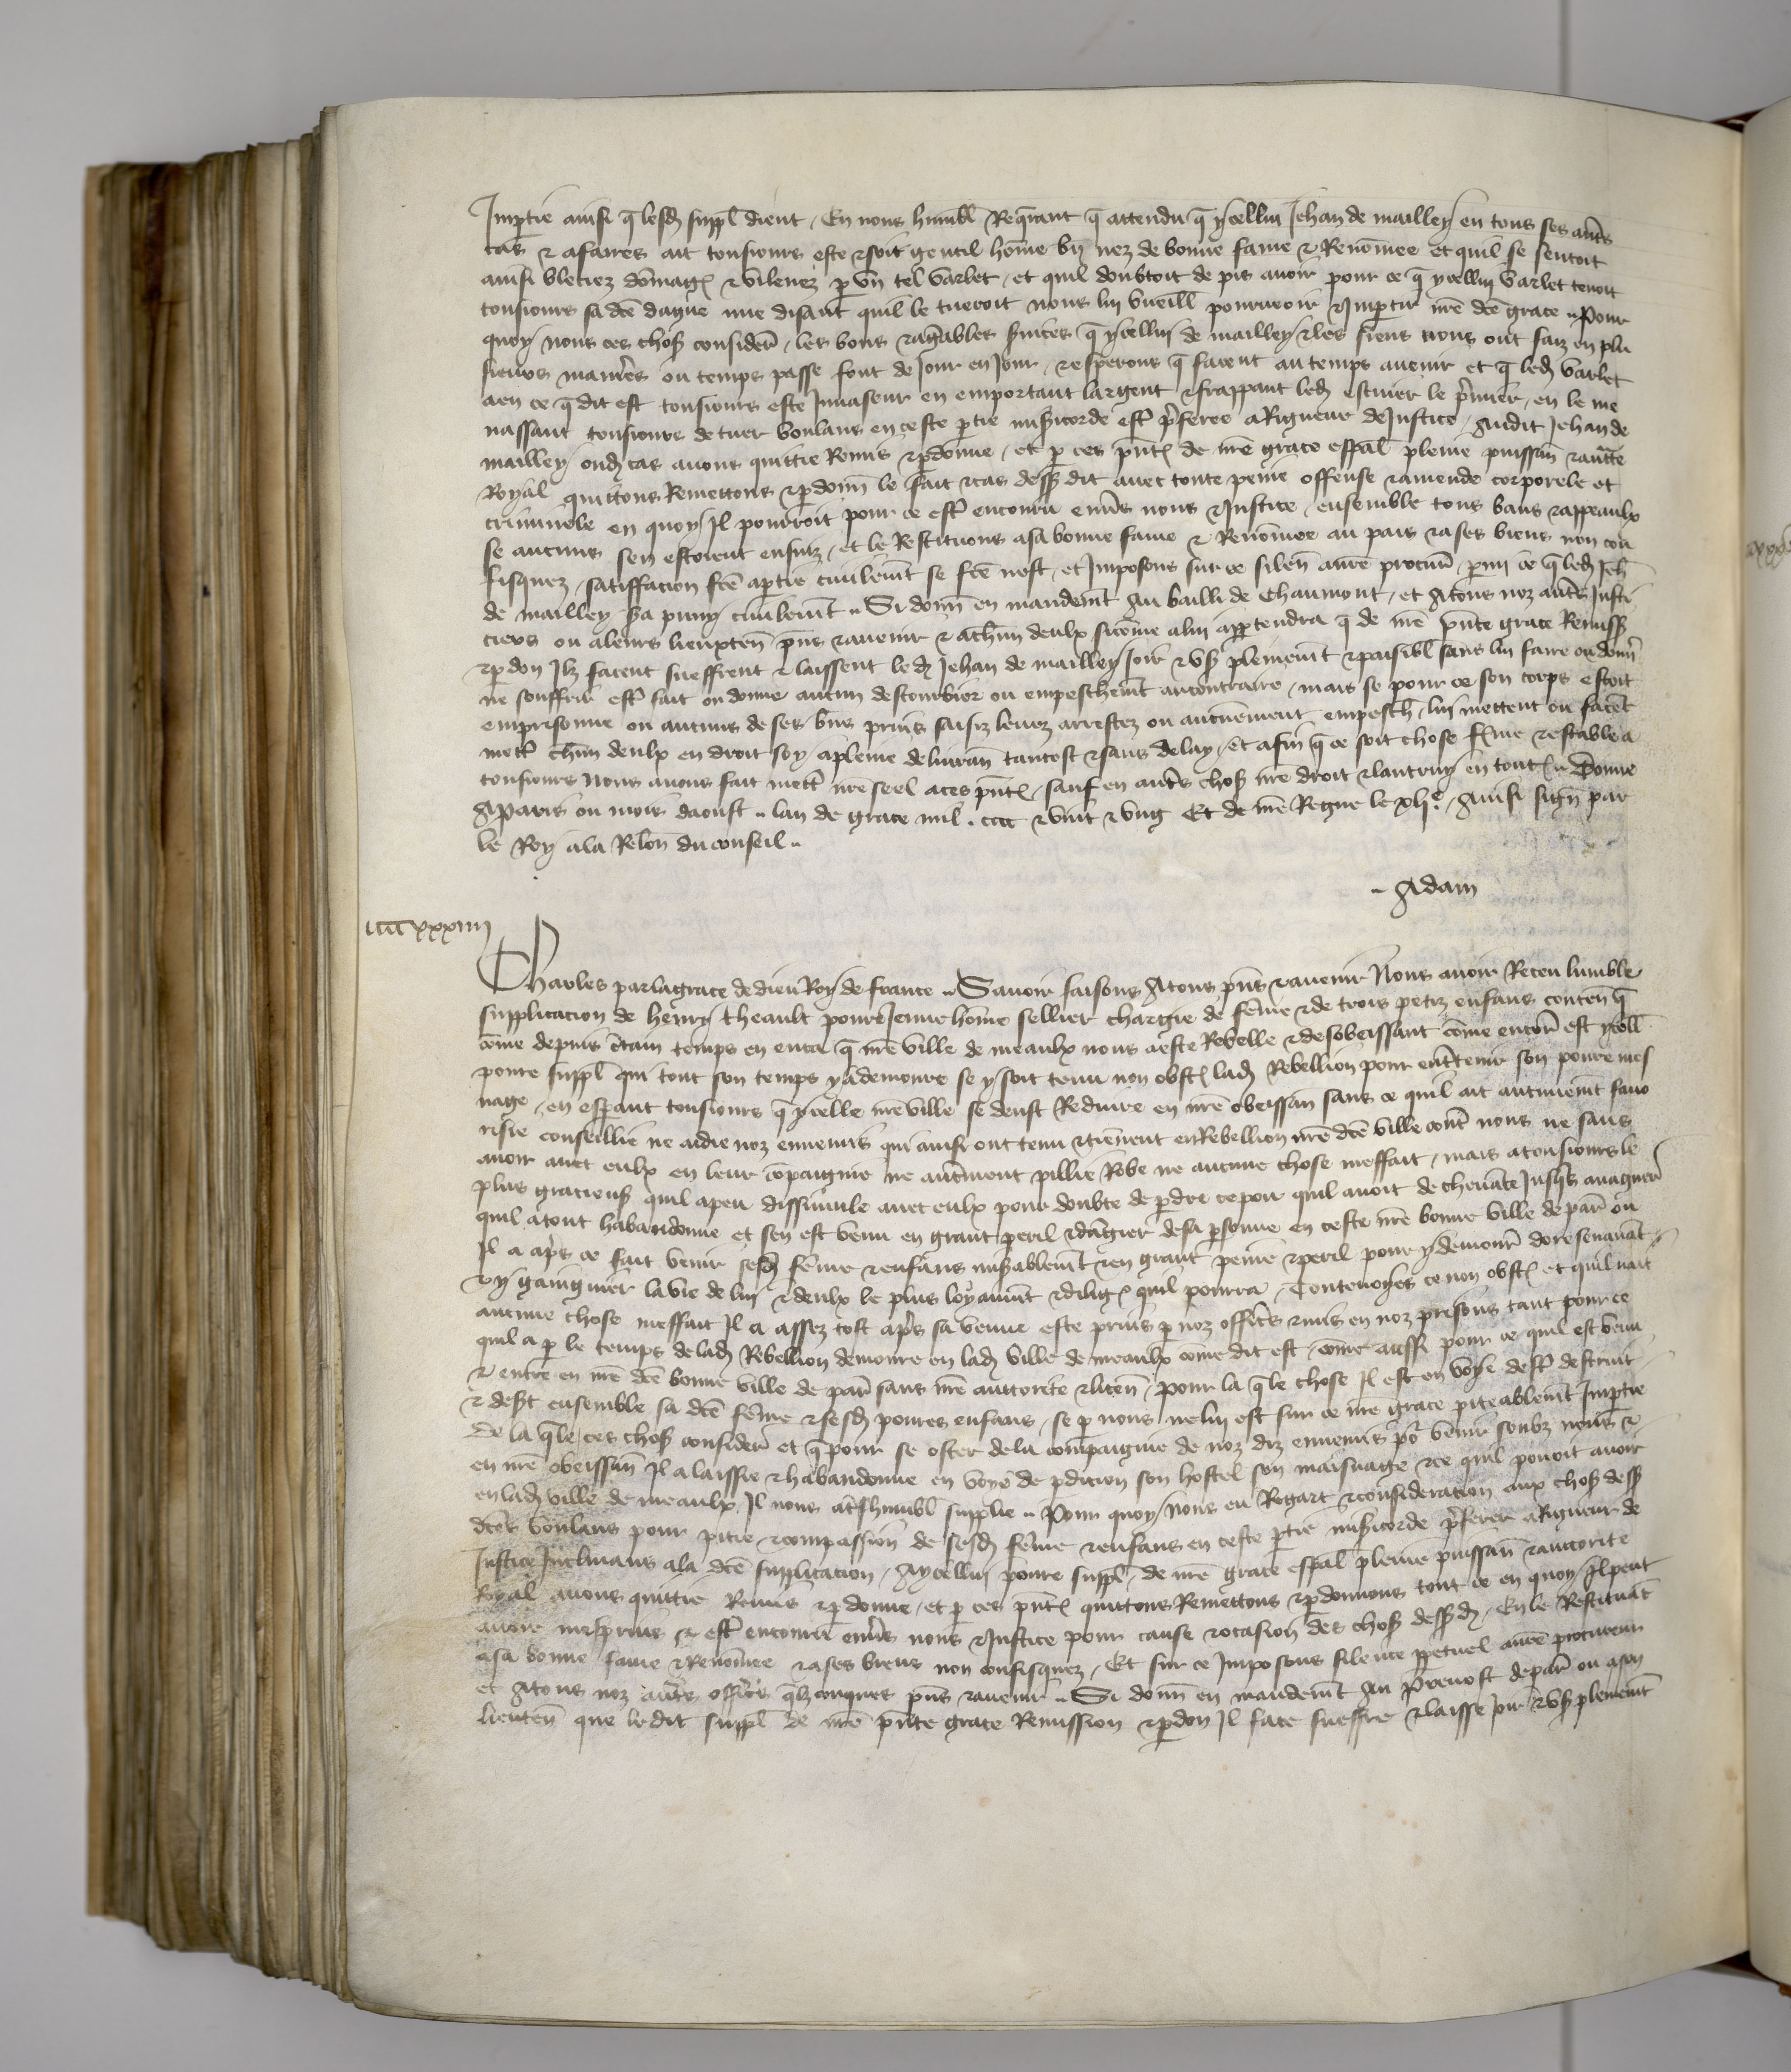 Imptie ainsi q̄ lesd suppl dient / En nous humbl Requerant q̄ attendu q̄ ycellui Jehan de mailley en tous ses autres
cas & afaires ait tousiours este & soit gentil home bn̄ nez de bonne fame & Renōmee et quil se sentoit
ainsi bleciez dōmag & vilenez p vn tel varlet / et quil doubtoit de pis auoir pour ce q̄ ycellui varlet tenoit
tousiours sa dcē dague nue disant quil le tueroit nous lui vueill pourueoir & Impartir nrē dcē grace Pour
quoy nous ces chos consider les bons & agrables suices q̄ ycellui de mailley & les siens nous ont faiz en plu
sieurs manrēs ou temps passe font de Jour en Jour & esperons q̄ facent au temps auenir et q̄ led varlet
a en ce q̄ dit est tousiours este Inuaseur en emportant largent & frappant led escuier le premier / en le me
nassant tousiours de tuer voulans en ceste ptie misicorde estr pferee a Rigueur de Justice / Audit Jehan de
mailley oud cas auons quittie Remis & pdonne / et p ces pnt de nrē grace espal pleine puissan & auctte
Royal quittons Remettons & pdonn le fait & cas dess dit auec toute peine offense & amende corporele et
criminele en quoy Il pourroit pour ce estr encouru enuers nous & Justice / ensemble tous bans & appeaulx
se aucuns sen estoient ensuiz / et le Restituons a sa bonne fame & Renōmee au pais & a ses biens non con
fisquez / satisfacion fcē a ptie ciuilemt se fcē nest / et Imposons sur ce silen a nrē procur / pmi ce q̄ led Jeh
de mailley sa puny ciuilemt Si donn en mandemt Au bailli de Chaumont / et A tous noz autres Justi
ciers ou a leurs lieuxten pns & auenir & a chun deulx si cōme a lui apptendra q̄ de nrē pnte grace Remiss
& pdon Ilz facent sueffrent & laissent led Jehan de mailley Joir & vs plemēnt & paisibl sans lui faire ou donn
ne souffrir estr fait ou donne aucun destourbier ou empeschemt au contraire / mais se pour ce son corps estoit
emprisonne ou aucuns de ses biens prins saisiz leuez arrestez ou aucunement empesch lui mettent ou facēt
mettr chun deulx en droit soy a pleine deliuran tantost & sans delay / Et afin q̄ ce soit chose ferme & estable a
tousiours Nous auons fait mettr nrē seel a ces pnt / sauf en autres chos nrē droit & lautruy en tout Donne
A Paris ou mois daoust lan de grace mil . cccc & vint & vng Et de nrē Regne le xlie . Ainsi sign par
le Roy a la Relon du conseil
Adam
iiiic xxxiiii
Charles par la grace de dieu Roy de france Sauoir faisons A tous pns & auenir Nous auoir Receu lumble
supplicacion de henry theault poure Jeune home sellier chargie de fēme & de trois petiz enfans conten q̄
cōme depuis ctain temps en enca q̄ nrē ville de meaulx nous a este Rebelle & desobeissant cōme encor est ycell
poure suppl qui tout son temps y a demoure se y soit tenu non obst lad Rebellion pour entretenir son poure mes
nage / en esperant tousiours q̄ ycelle nrē ville se deust Reduire en nrē obeissan sans ce quil ait aucunemt fauo
risie conseillie ne aidie noz ennemis qui ainsi ont tenu & tiennent en Rebellion nrē dcē ville contr nous ne sans
auoir auec eulx en leur compaignie ne autrement pillie Robe ne aucune chose meffait / mais a tousiours le
plus gracieus quil a peu dissimule auec eulx pour doubte de pdre ce pou quil auoit de cheuance Jusqs a naguer
quil a tout habandonne et sen est venu en grant peril & dangier de sa psonne en ceste nrē bonne ville de par ou
Il a aps ce fait venir sesd fēme & enfans misablemt & en grant peine & peril pour y demour doresenauant
& y gaingnier la vie de lui & deulx le plus loyaumt & dilig quil pourra / Toutenoyes ce non obst et quil nait
aucune chose meffait Il a assez tost aps sa venue este prins p noz officrs & mis en noz prisons tant pour ce
quil a p le temps de lad Rebellion demoure en lad ville de meaulx come dit est / cōme aussi pour ce quil est venu
& entre en nrē dcē bonne ville de par sans nrē auctorite & licen / pour la qle chose Il est en voye destr destruit
& desert ensemble sa dcē fēme & sesd poures enfans / se p nous ne lui est sur ce nrē grace piteablemt Imptie
de la qle ces chos consider et q̄ pour se oster de la compaignie de noz diz ennemis por venir soubz nous &
en nrē obeissan Il a laissie & habandonne en voye de pdicion son hostel son maisnage & ce quil pouoit auoir
en lad ville de meaulx Il nous a treshumbl supplie Pour quoy Nous eu Regart & consideracion aux chos dess
dcēs voulans pour pitie & compassion de sesd fēme & enfans en ceste ptie misicorde pferer a Rigueur de
Justice Inclinans a la dcē supplicacion / A ycellui poure suppl / de nrē grace espal pleine puissan & auctorite
Royal auons quittie Remis & pdonne / et p ces pnt quittons Remettons & pdonnons tout ce en quoy Il peut
auoir mesprins & estr encouru enuers nous & Justice pour cause & ocasion des chos dessd / En le Restituāt
a sa bonne fame & Renōmee & a ses biens non confisquez / Et sur ce Imposons silence ppetuel a nrē procureur
et A tous noz autres officrs qlzconques pns & auenir Si donn en mandemt Au Preuost de par ou a son
lieuten que ledit suppl de nrē pnte grace Remission & pdon Il face sueffre & laisse Joir & vs plemēnt